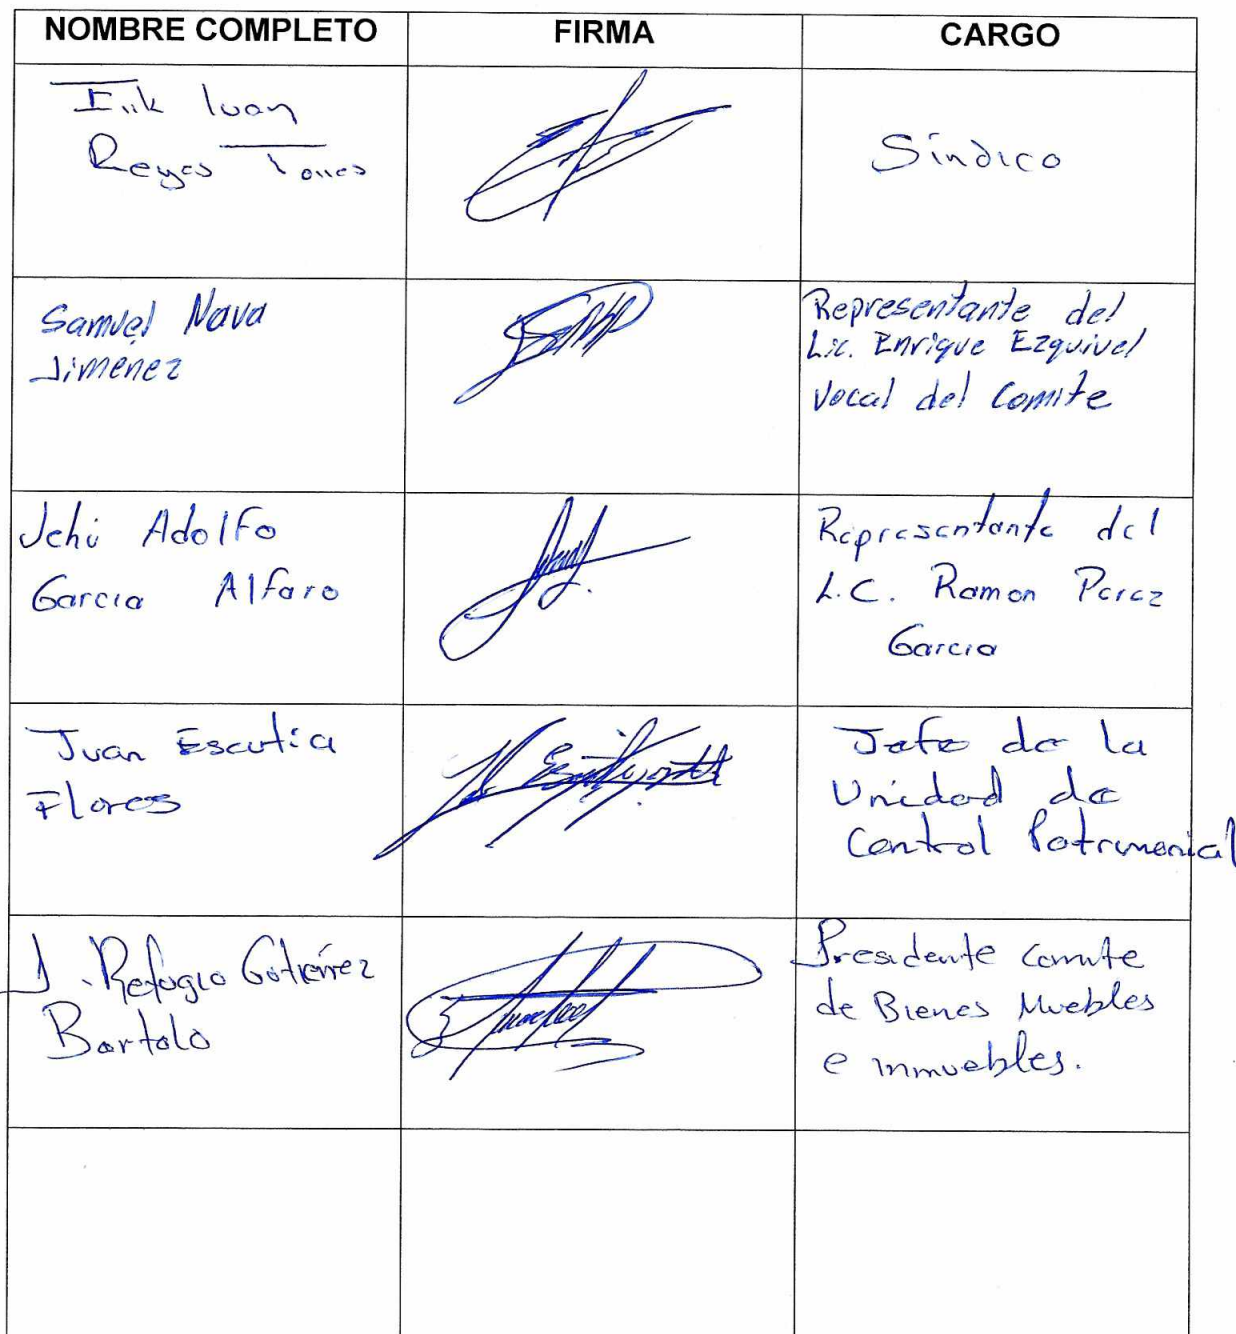 NOMBRE COMPLETO FIRMA CARGO
Erik Ivan
Reyes Torres
Síndico
Samuel Nava
Jimenez
Representante del
Lic. Enrique Ezquivel
Vocal del Comite
Jehú Adolfo
Garcia Alfaro
Representante del
L.C. Ramon Perez
Garcia
Juan Escutia
Flores
Jefe de la
Unidad de
Control Patrimonial
J. Refugio Gutiérrez
Bartolo
Presidente comite
de Bienes Muebles
e inmuebles.